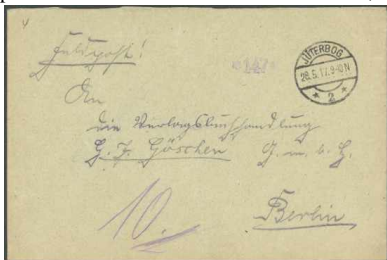 Feldpost!
*147*
JÜTERBOG
28.5.17. 9-10N
* 2 *
An
die Verlagsbuchhandlung
G. J. Göschen G. m. b. H.
10.
Berlin